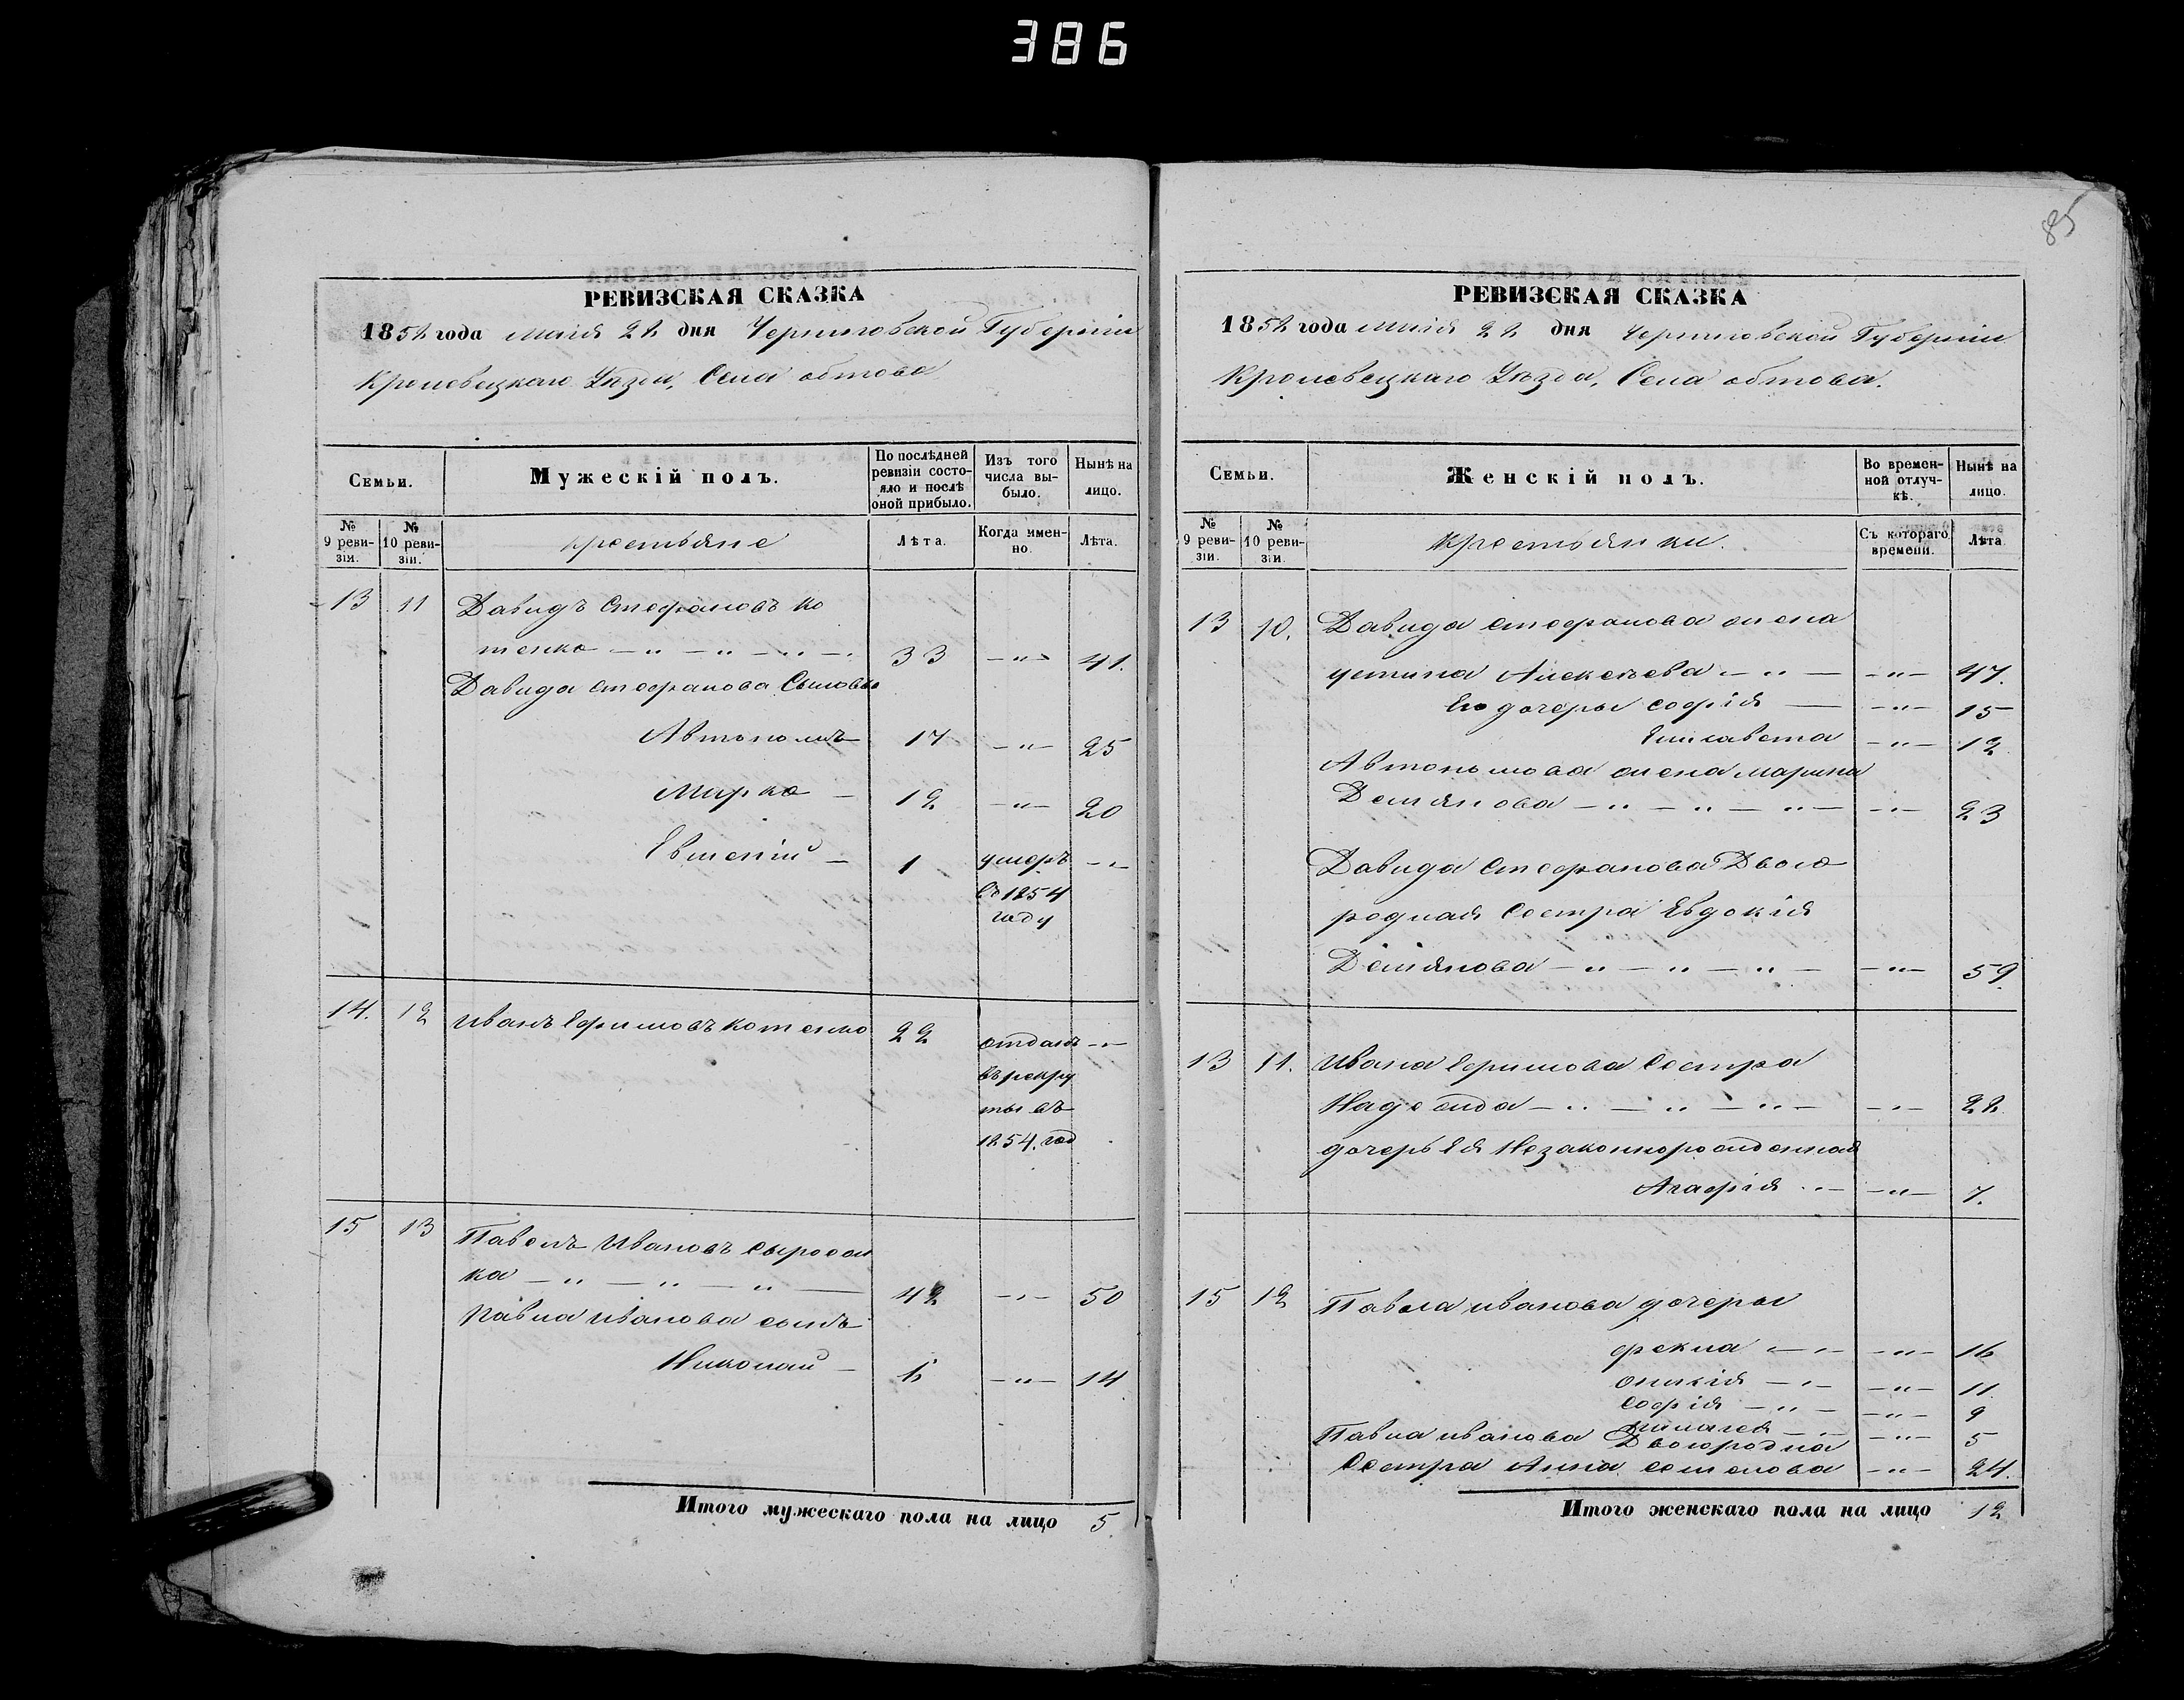 386
85
РЕВИЗСКАЯ СКАЗКА
1858 года маія 28 дня Черниговской Губерніи
Кролевецкаго Уѣзда, Села обтова
Семьи.
Мужескій полъ.
По послѣдней ревизіи состояло и послѣ оной прибыло.
Изъ того числа выбыло.
Нынѣ на лицо.
№ 9 ревизіи.
№ 10 ревизіи.
крестьяне
Лѣта.
Когда именно.
Лѣта.
13 11 Давидъ Стефановъ Ко
тенко — " — " — " — 33 — " — 41.
Давида Стефанова Сыновья
Автономъ 17 — " — 25
Марко — 12 — " — 20
Евгеній — 1 умеръ — " —
въ 1854
году
14. 12 Иванъ Ефимовъ котенко 22 отданъ — " —
въ рекру
ты въ
1854. год
15 13 Павелъ Ивановъ Сыроеж
ка — " — " — " — 42 — " — 50
Павла Иванова сынъ
Николай — 6 — " — 14
Итого мужескаго пола на лицо 5.
РЕВИЗСКАЯ СКАЗКА
1858 года маія 28 дня Черниговской Губерніи
Кролевецкаго Уѣзда, Села обтова.
Семьи.
Женскій полъ.
Во временной отлучкѣ.
Нынѣ на лицо.
№ 9 ревизіи.
№ 10 ревизіи.
крестьянки.
Съ котораго времени.
Лѣта
13 10. Давида Стефанова жена
устина Алексѣева — " — — " — 47.
Его дочеры софія — — " — 15
Елисавета — " — 12.
Автономова жена марина
Демянова — " — " — " — — " — 23
Давида Стефанова Двою
родная Сестра Евдокія
Демянова — " — " — " — — " — 59.
13 11. Ивана Ефимова Сестра
Надежда — " — " — " — — " — 28
дочерь Ея Незаконнорожденная
Агафія — " — — " — 7.
15 12 Павла иванова дочеры
фекла — " — — " — 16
софія — " — — " — 9
— " — 5
Павла иванова Двоюродна
Сестра Анна Семенова — " — 24.
Итого женскаго пола на лицо 12